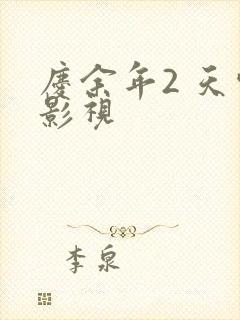 庆余年2 天
影视
李泉